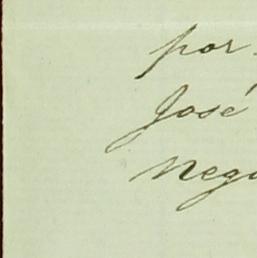 por
José
Nego